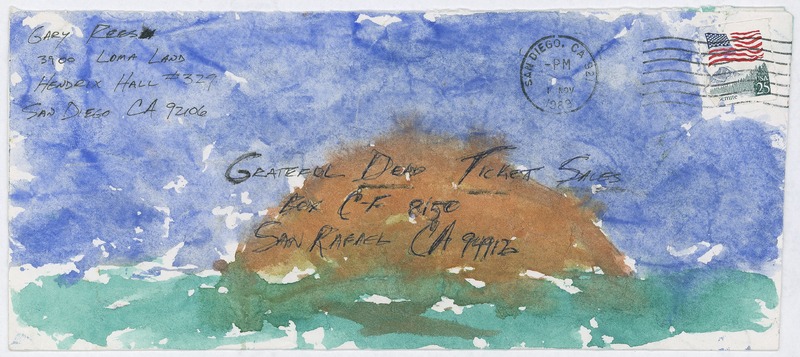 Gary Rees
3900 Loma Land
Hendrix Hall #329
San Diego CA 92106
SAN DIEGO, CA 921
-PM
1989
USA
25
Grateful Dead Ticket Sales
Box C-F 8150
San Rafael CA 94912